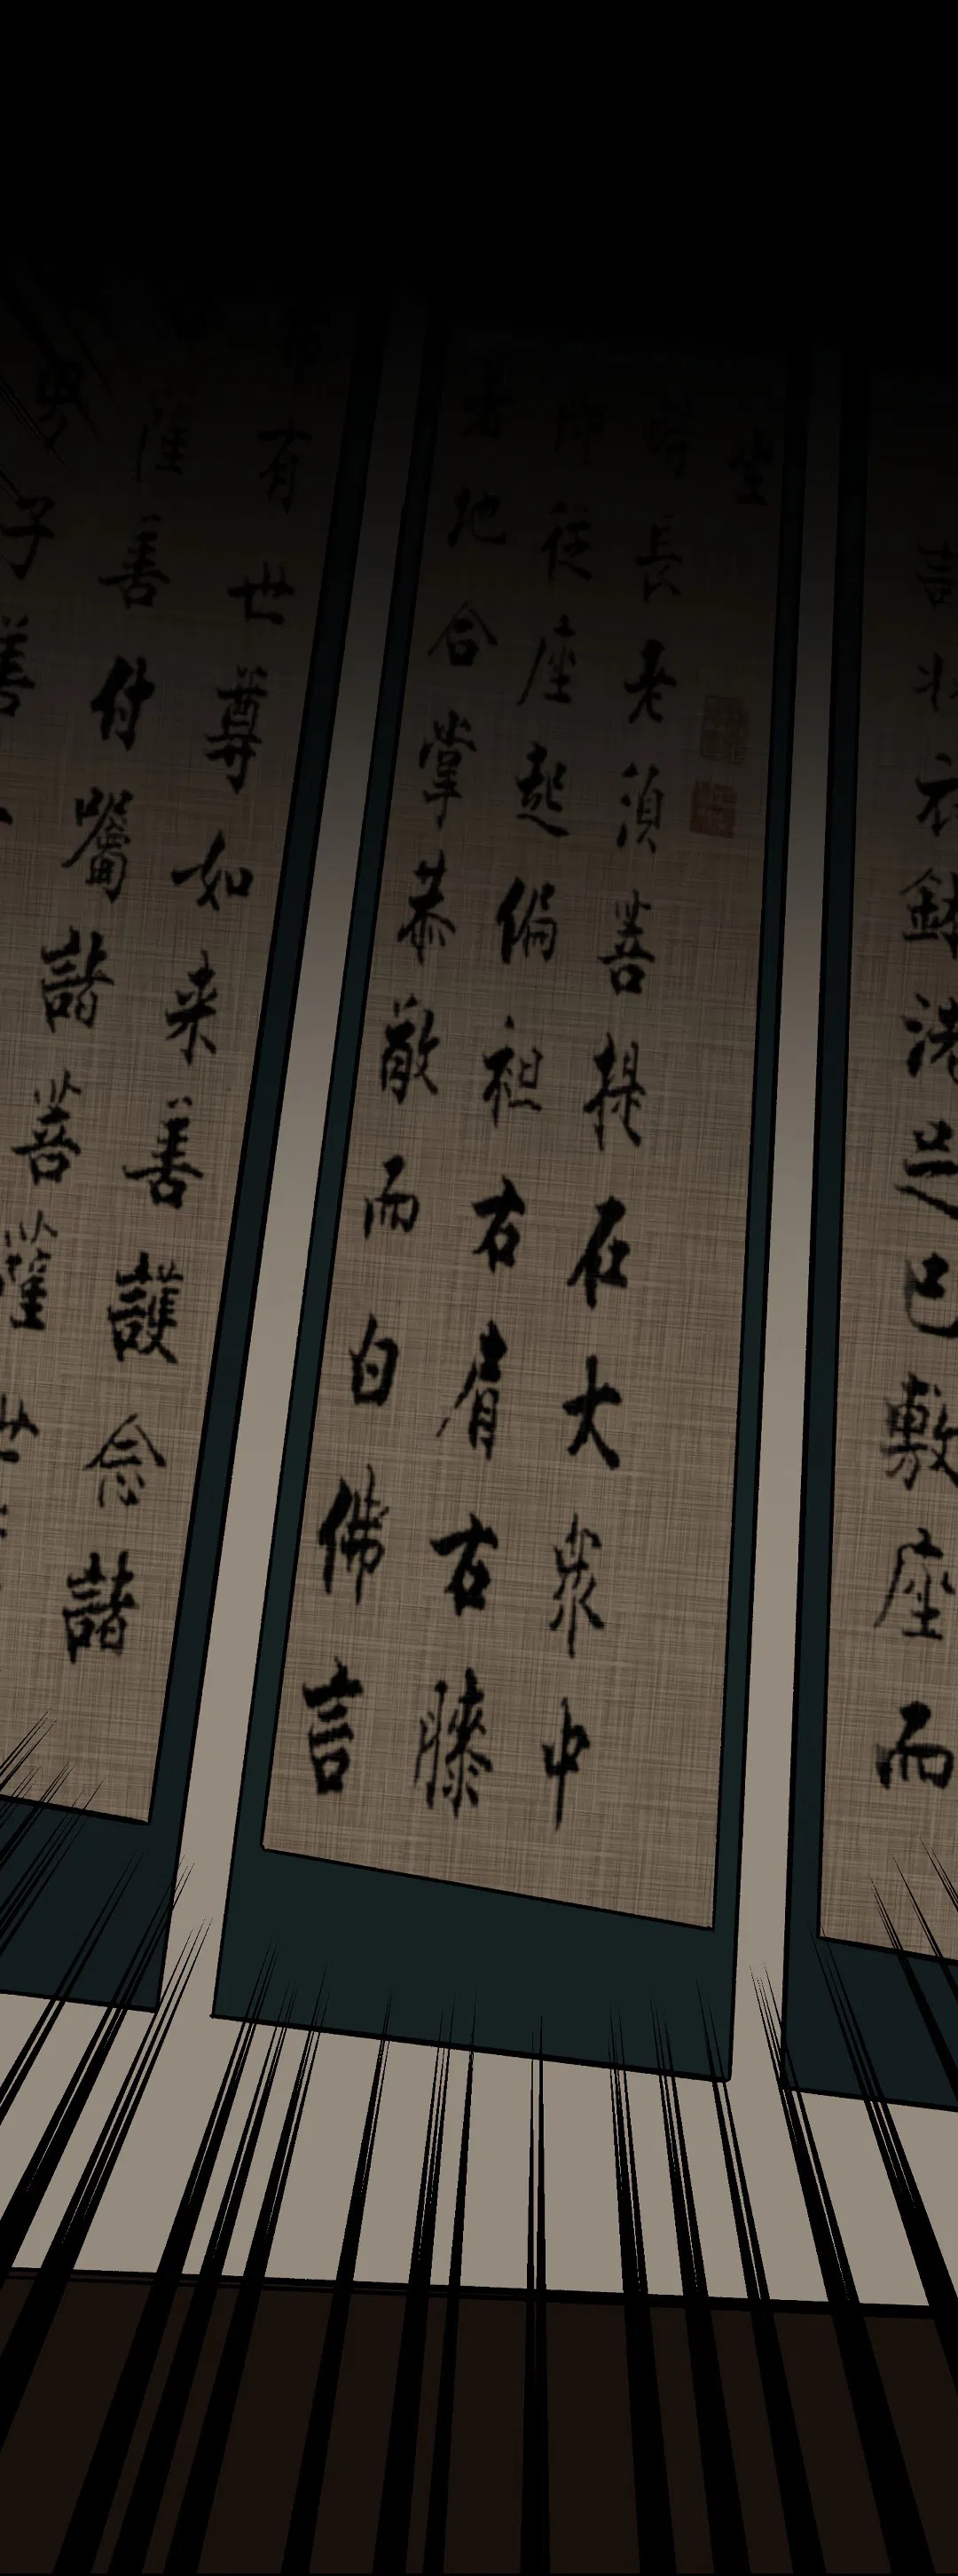 收衣鉢洗足已敷座而
坐
時長老須菩提在大衆中
即從座起偏袒右肩右膝
著地合掌恭敬而白佛言
有世尊如来善護念諸
薩善付囑諸菩薩世
男子善